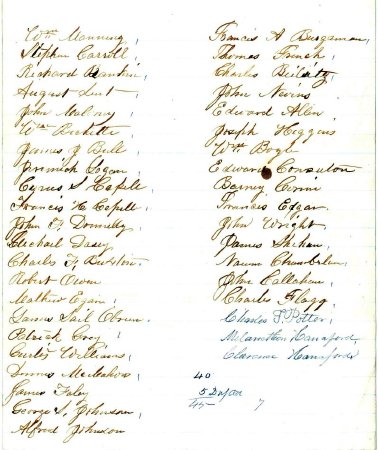 Wm Manning,
Stephen Carroll,
Richard Rankin,
August
John Maloney,
Wm Beckett,
James J Bell,
Jeremiah Logan,
Cyrus S Capell,
Francis H Capell,
John F. Donnelly
Michael Dacy
Charles F.
Robert Owen
Mathew Egan,
James Gail Obrien,
Patrick Grey,
Curtis Williams,
Dennis McMahon,
James Foley
George S. Johnson,
Alfred Johnson
Francis A Bergaman,
Thomas French,
Charles
John Nevins
Edward Allen
Joseph Higgens
Wm Boyle
Edward
Barney
Francis Edgar,
John Wright,
James Shehan,
Naum Chamberlin,
John Callahan,
Charles Flagg
Charles F. Potter,
Melancthon Hanaford
Clarence Hanaford
40
5
45
7